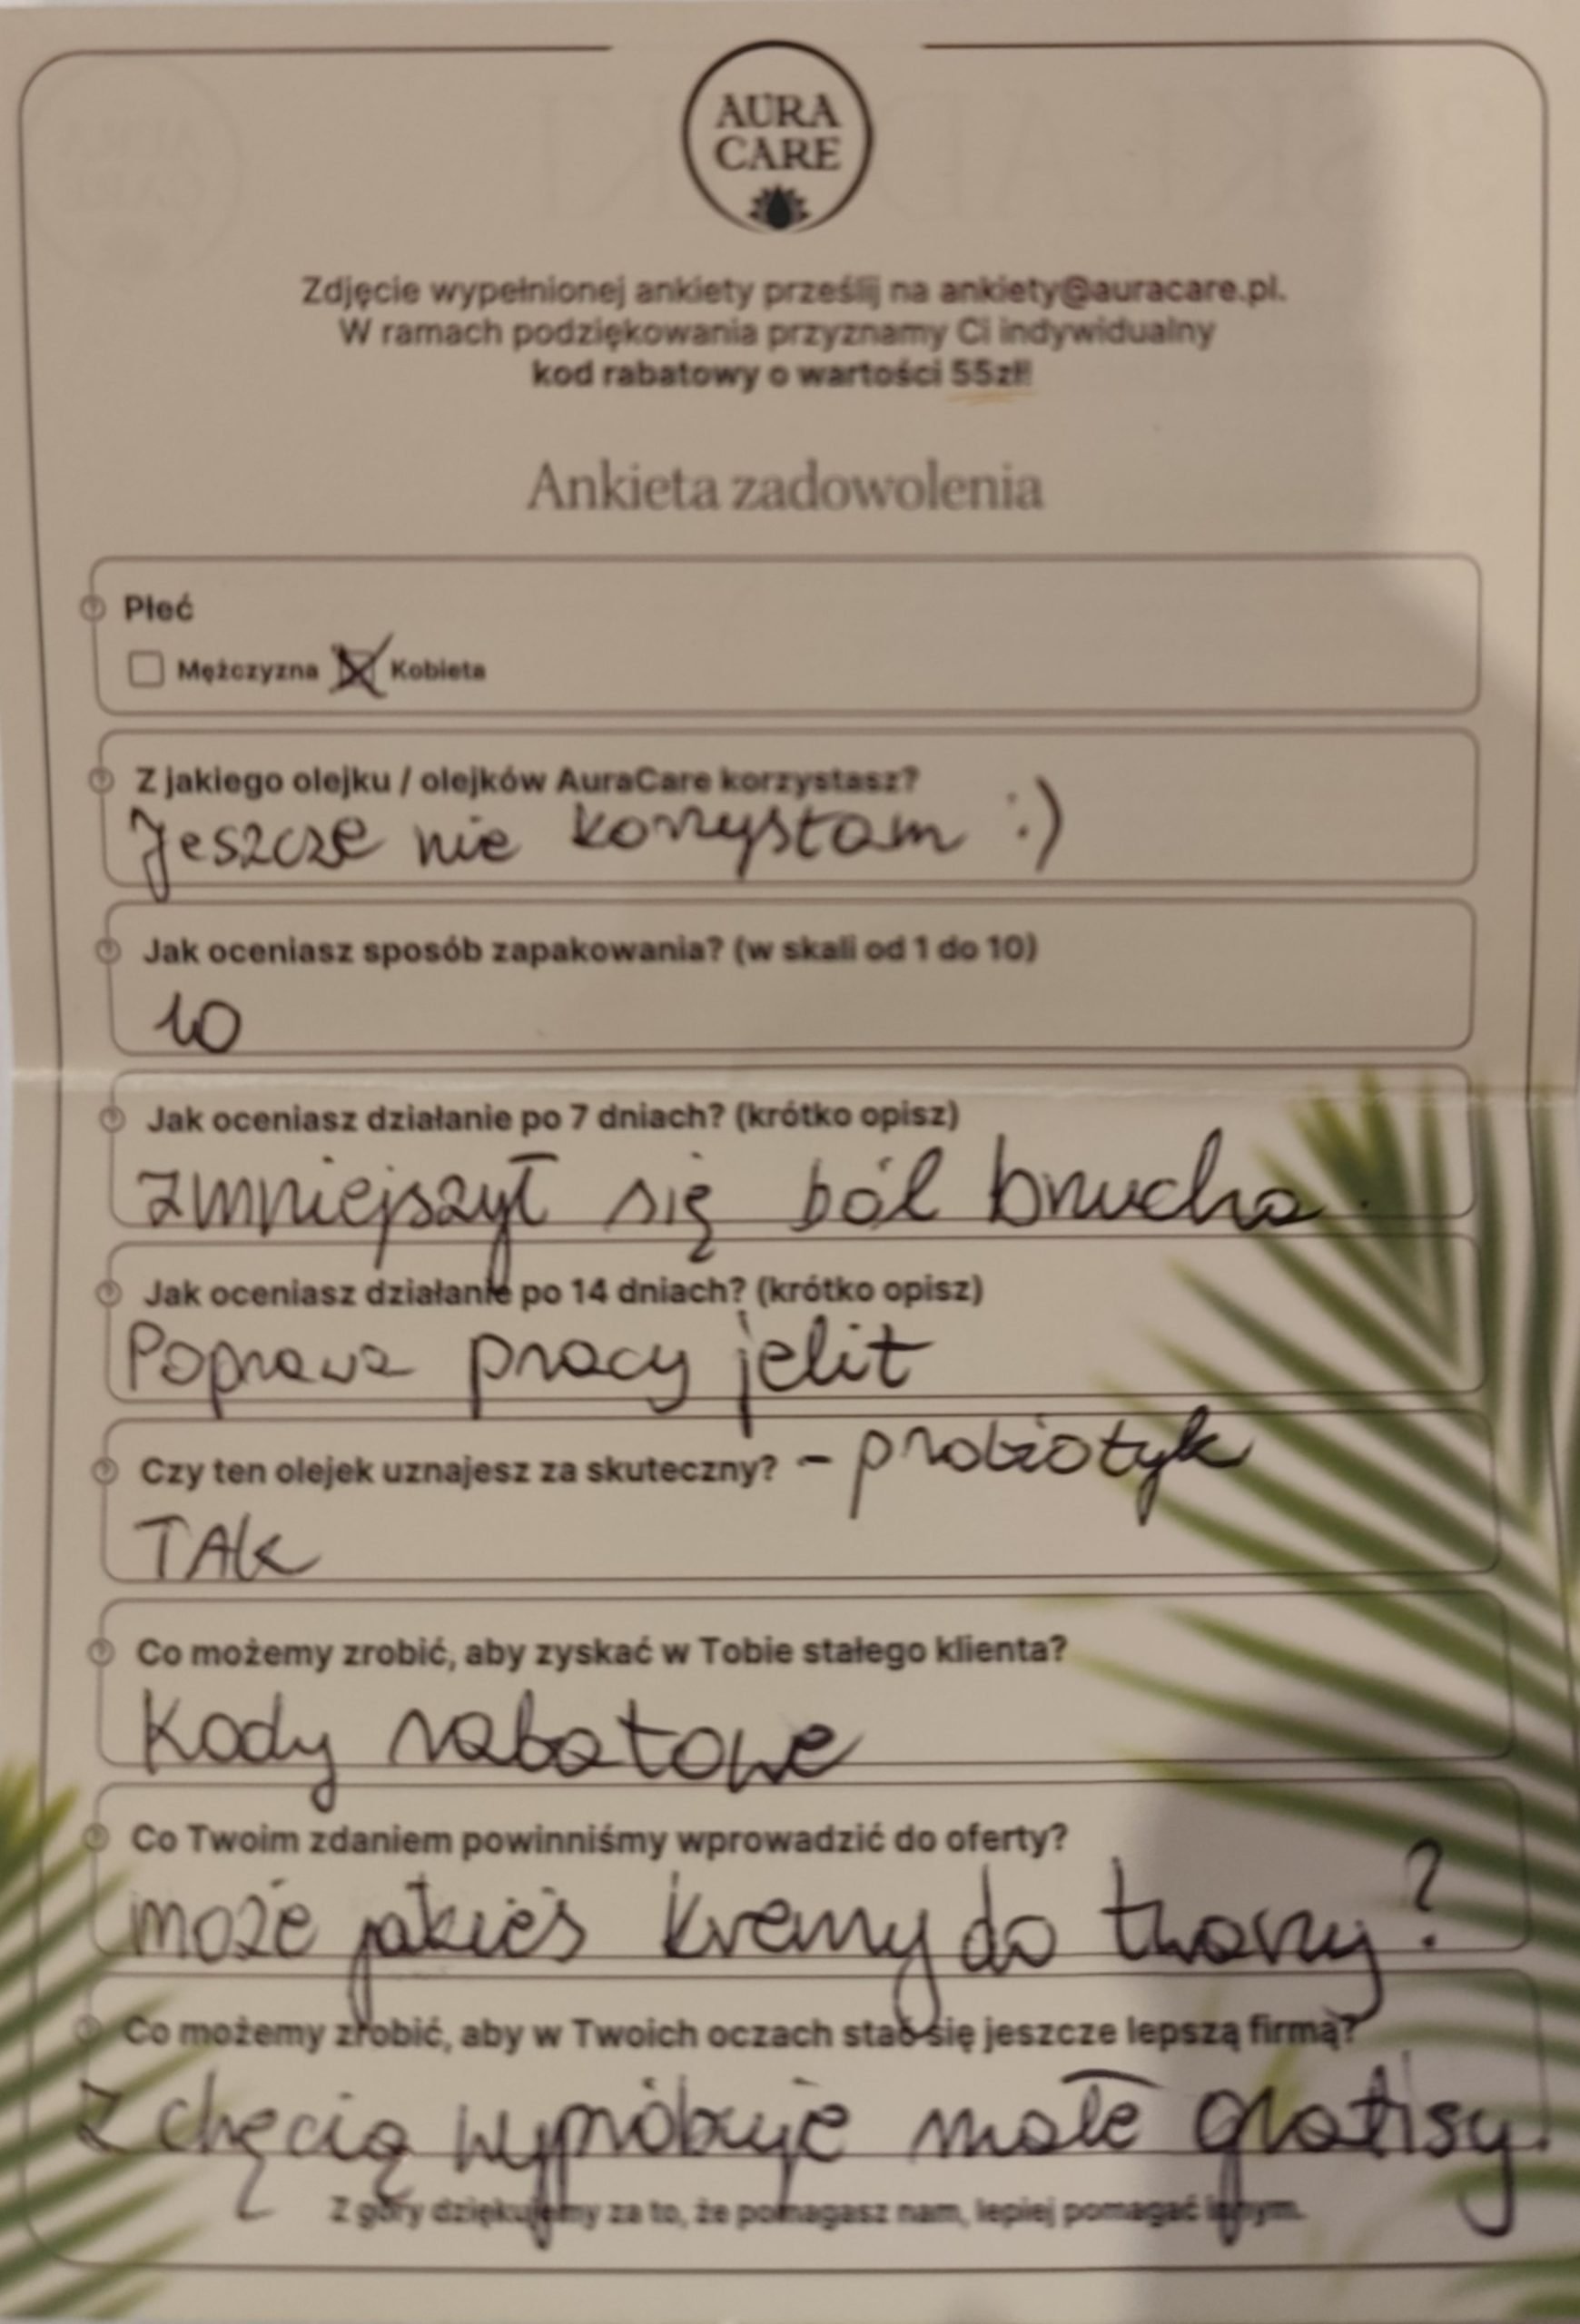 AURA
CARE
Zdjęcie wypełnionej ankiety prześlij na ankiety@auracare.pl.
W ramach podziękowania przyznamy Ci indywidualny
kod rabatowy o wartości 55zł!
Ankieta zadowolenia
Płeć
Mężczyzna Kobieta
Z jakiego olejku / olejków AuraCare korzystasz?
Jeszcze nie korzystam :)
Jak oceniasz sposób zapakowania? (w skali od 1 do 10)
10
Jak oceniasz działanie po 7 dniach? (krótko opisz)
zmniejszył się ból brzucha.
Jak oceniasz działanie po 14 dniach? (krótko opisz)
Poprawa pracy jelit
Czy ten olejek uznajesz za skuteczny? - probiotyk
TAK
Co możemy zrobić, aby zyskać w Tobie stałego klienta?
Kody rabatowe
Co Twoim zdaniem powinniśmy wprowadzić do oferty?
może jakieś kremy do twarzy?
Co możemy zrobić, aby w Twoich oczach stać się jeszcze lepszą firmą?
Z chęcią wypróbuję małe gratisy.
Z góry dziękujemy za to, że pomagasz nam, lepiej pomagać innym.